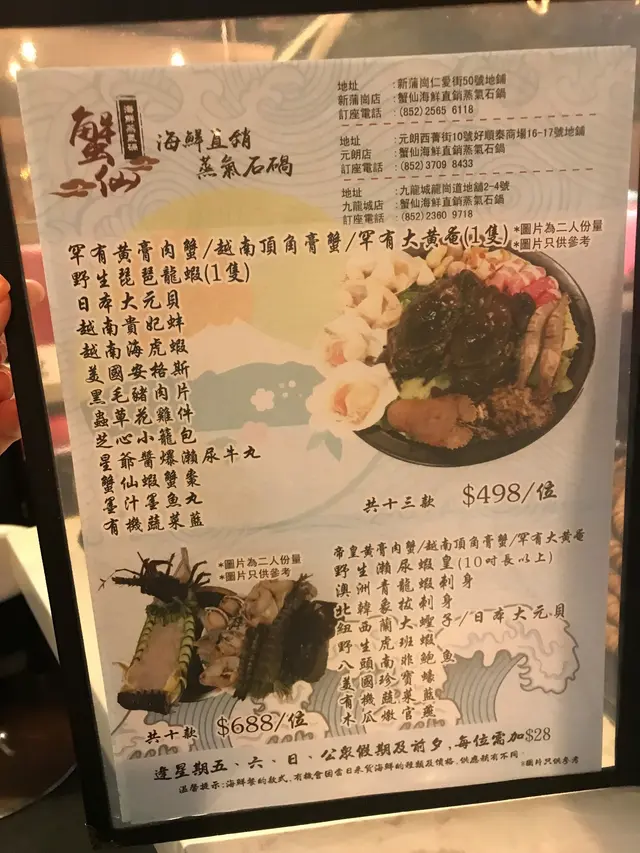 蟹仙
海鮮蒸氣鍋
海鮮直銷
蒸氣石鍋
地址 :新蒲崗仁愛街50號地鋪
新蒲崗店 :蟹仙海鮮直銷蒸氣石鍋
訂座電話 :(852) 2565 6118
地址 :元朗西菁街10號好順泰商場16-17號地鋪
元朗店 :蟹仙海鮮直銷蒸氣石鍋
訂座電話 :(852) 3709 8433
地址 :九龍城龍崗道地舖2-4號
九龍城店 :蟹仙海鮮直銷蒸氣石鍋
訂座電話 :(852) 2360 9718
*圖片為二人份量
*圖片只供參考
罕有黃膏肉蟹/越南頂角膏蟹/罕有大黃奄(1隻)
野生琵琶龍蝦(1隻)
日本大元貝
越南貴妃蚌
越南海虎蝦
美國安格斯
黑毛豬肉片
蟲草花雞件
芝心小籠包
星爺醬爆瀨尿牛丸
蟹仙蝦蟹棗
墨汁墨魚丸
有機蔬菜籃
共十三款 $498/位
*圖片為二人份量
*圖片只供參考
帝皇黃膏肉蟹/越南頂角膏蟹/罕有大黃奄
野生瀨尿蝦皇(10吋長以上)
澳洲青龍蝦刺身
北韓象拔刺身
紐西蘭大蟶子/日本大元貝
野生虎斑蝦
八頭南非鮑魚
美國珍寶蠔
有機蔬菜籃
木瓜燉官燕
共十款 $688/位
逢星期五、六、日、公眾假期及前夕,每位需加$28
溫馨提示:海鮮餐的款式,有機會因當日來貨海鮮的種類及價格,供應類有不同
*圖片只供參考